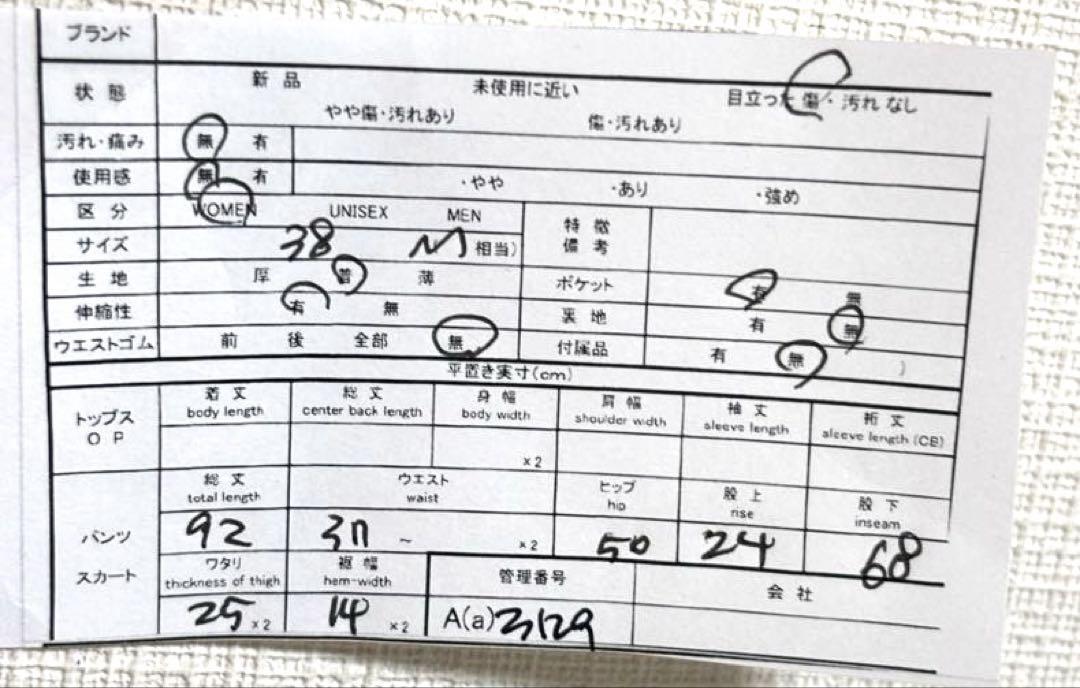 ブランド
状態 新品 未使用に近い 目立った傷・汚れなし
やや傷・汚れあり 傷・汚れあり
汚れ・痛み 無 有
使用感 無 有 ・やや ・あり ・強め
区分 WOMEN UNISEX MEN 特徴
サイズ 38 M 相当) 備考
生地 厚 普 薄 ポケット 有 無
伸縮性 有 無 裏地 有 無
ウエストゴム 前 後 全部 無 付属品 有 無 )
平置き実寸(cm)
トップス 着丈 総丈 身幅 肩幅 袖丈 裄丈
OP body length center back length body width shoulder width sleeve length sleeve length (CB)
x2
総丈 ウエスト ヒップ 股上 股下
total length waist hip rise inseam
パンツ 92 ~ x2 50 24 68
スカート ワタリ 裾幅 管理番号 会社
thickness of thigh hem-width
25 x2 14 x2 A(a)3129